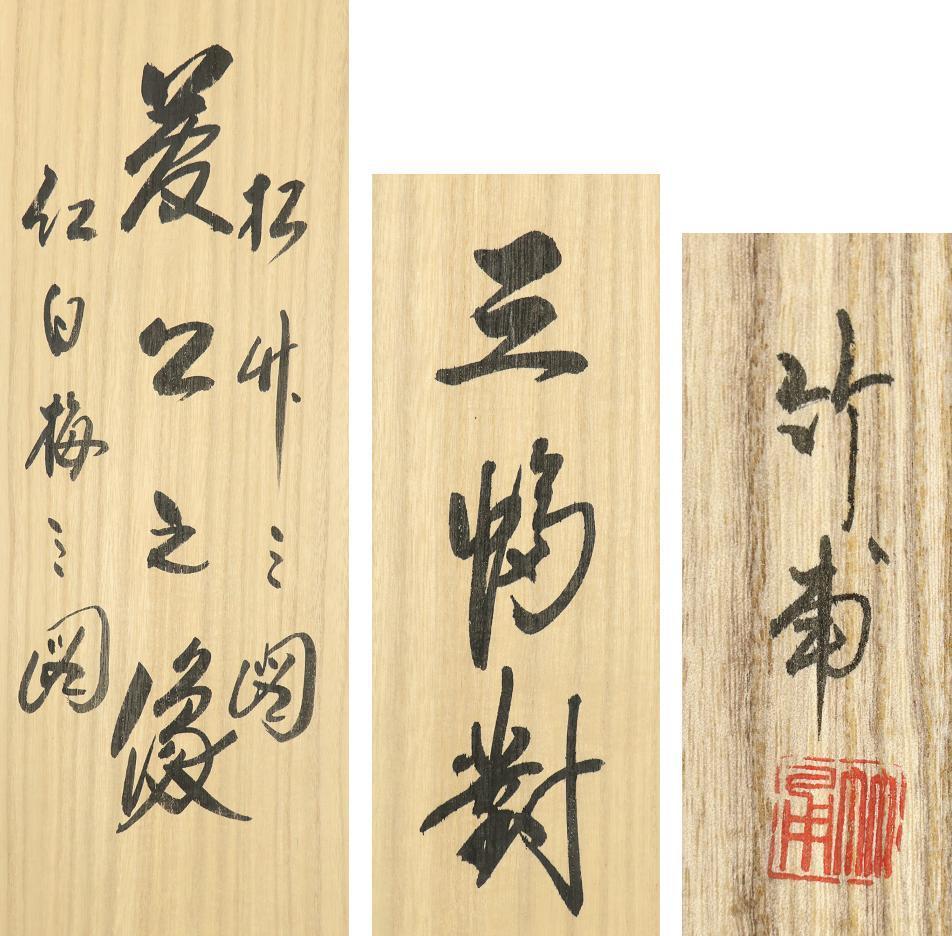 松竹之図
菱公之像
紅白梅之図
三幅對
竹甫
竹甫